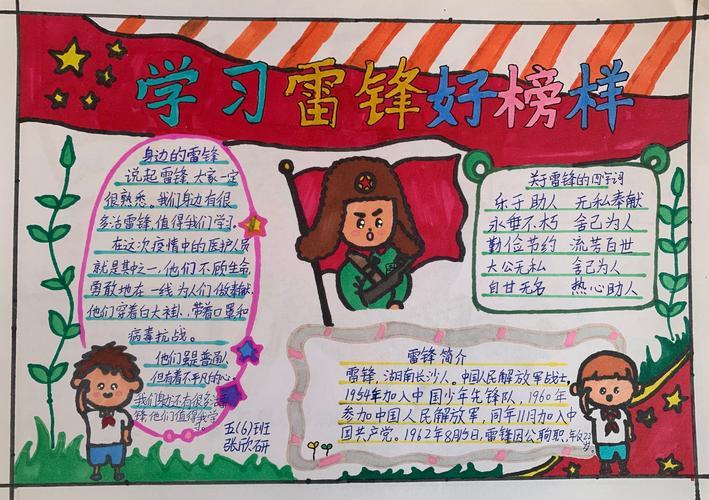 学习雷锋好榜样
身边的雷锋
说起雷锋,大家一定
很熟悉。我们身边有很
多活雷锋,值得我们学习。
在这次疫情中的医护人员
就是其中之一,他们不顾生命,
勇敢地在一线为人们做奉献,
他们穿着白大褂、带着口罩和
病毒抗战。
他们虽是普通,
但有着不平凡的心。
我们身边还有很多活雷
锋,他们值得我学
五(6)班
张欣研
关于雷锋的四字词
乐于助人 无私奉献
永垂不朽 舍己为人
勤俭节约 流芳百世
大公无私 舍己为人
自甘无名 热心助人
雷锋简介
雷锋,湖南长沙人。中国人民解放军战士,
1954年加入中国少年先锋队,1960年
参加中国人民解放军,同年11月加入中
国共产党。1962年8月15日,雷锋因公殉职,年仅22
岁。